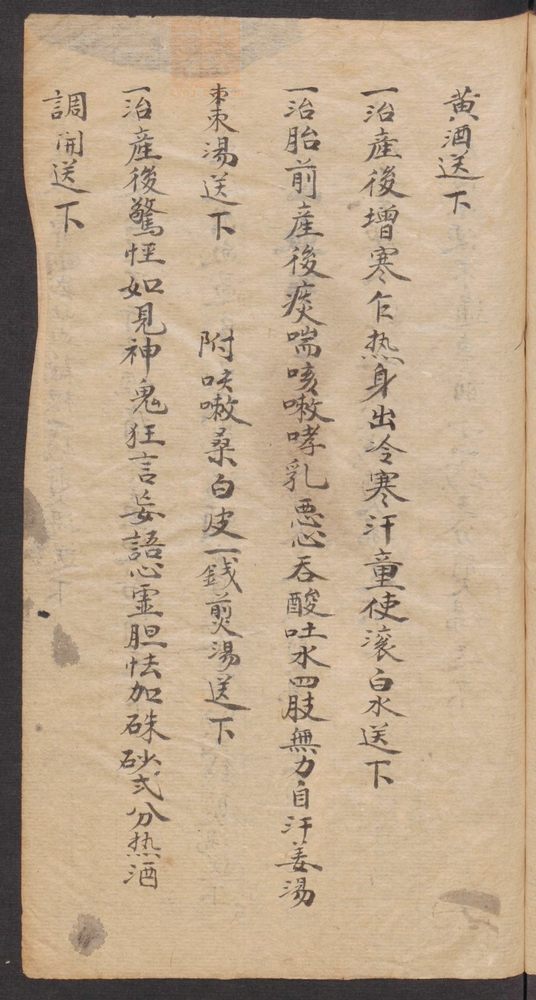 黄酒送下
一治產後增寒乍热身出冷寒汗童使滚白水送下
一治胎前產後痰喘咳嗽哮乳恶心吞酸吐水四肢無力自汗姜湯
棗湯送下　附咳嗽桑白皮一錢煎湯送下
一治產後驚怪如見神鬼狂言妄語心虚胆怯加硃砂弍分热酒
調開送下